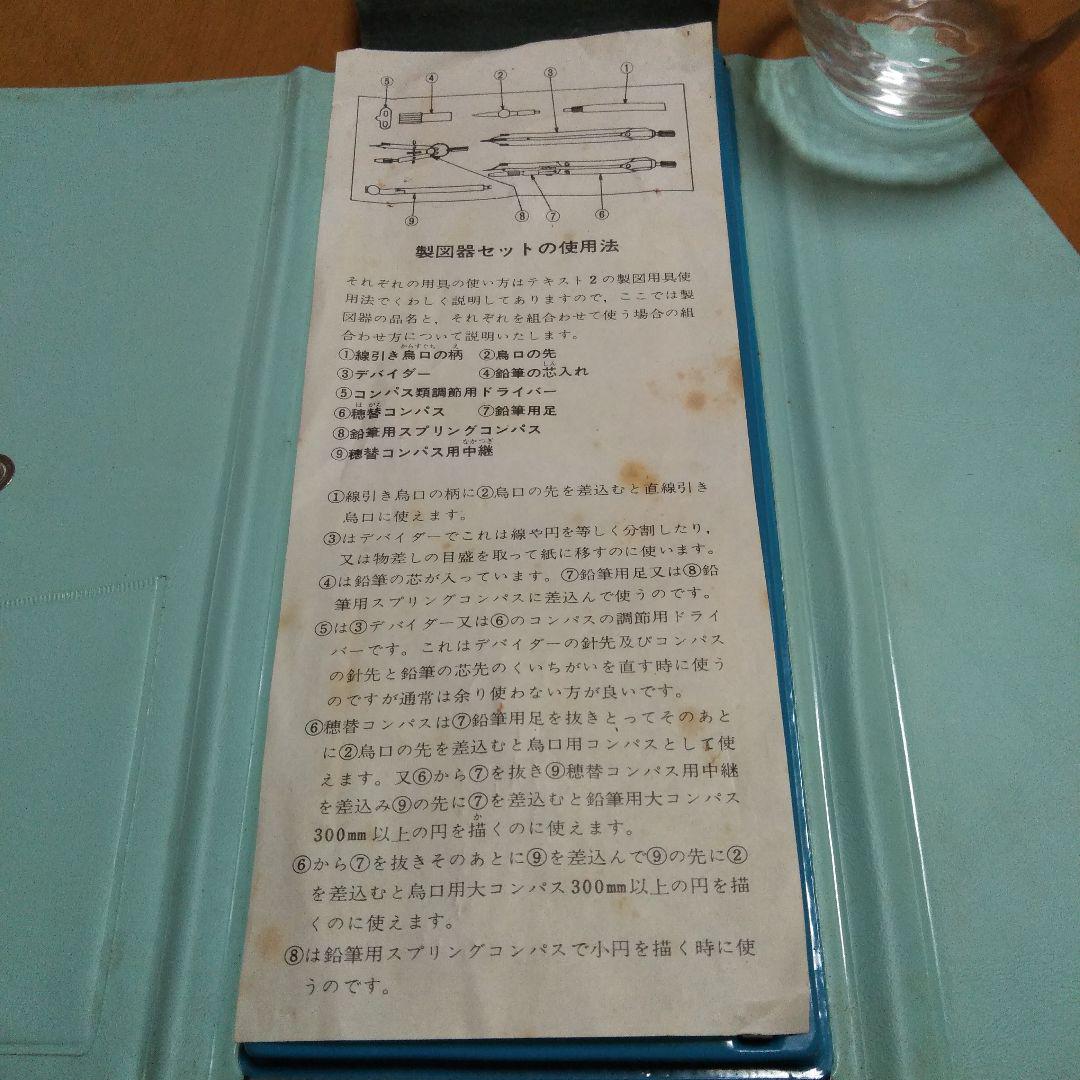 ⑤ ④ ② ③ ①
⑨ ⑧ ⑦ ⑥
製図器セットの使用法
それぞれの用具の使い方はテキスト2の製図用具使
用法でくわしく説明してありますので，ここでは製
図器の品名と，それぞれを組合わせて使う場合の組
合わせ方について説明いたします。
からすぐち え
①線引き烏口の柄 ②烏口の先
しん
③デバイダー ④鉛筆の芯入れ
⑤コンパス類調節用ドライバー
ほ がえ
⑥穂替コンパス ⑦鉛筆用足
⑧鉛筆用スプリングコンパス
なかつぎ
⑨穂替コンパス用中継
①線引き烏口の柄に②烏口の先を差込むと直線引き
烏口に使えます。
③はデバイダーでこれは線や円を等しく分割したり，
又は物差しの目盛を取って紙に移すのに使います。
④は鉛筆の芯が入っています。⑦鉛筆用足又は⑧鉛
筆用スプリングコンパスに差込んで使うのです。
⑤は③デバイダー又は⑥のコンパスの調節用ドライ
バーです。これはデバイダーの針先及びコンパス
の針先と鉛筆の芯先のくいちがいを直す時に使う
のですが通常は余り使わない方が良いです。
⑥穂替コンパスは⑦鉛筆用足を抜きとってそのあと
に②烏口の先を差込むと烏口用コンパスとして使
えます。又⑥から⑦を抜き⑨穂替コンパス用中継
を差込み⑨の先に⑦を差込むと鉛筆用大コンパス
か
300mm以上の円を描くのに使えます。
⑥から⑦を抜きそのあとに⑨を差込んで⑨の先に②
を差込むと烏口用大コンパス300mm以上の円を描
くのに使えます。
⑧は鉛筆用スプリングコンパスで小円を描く時に使
うのです。